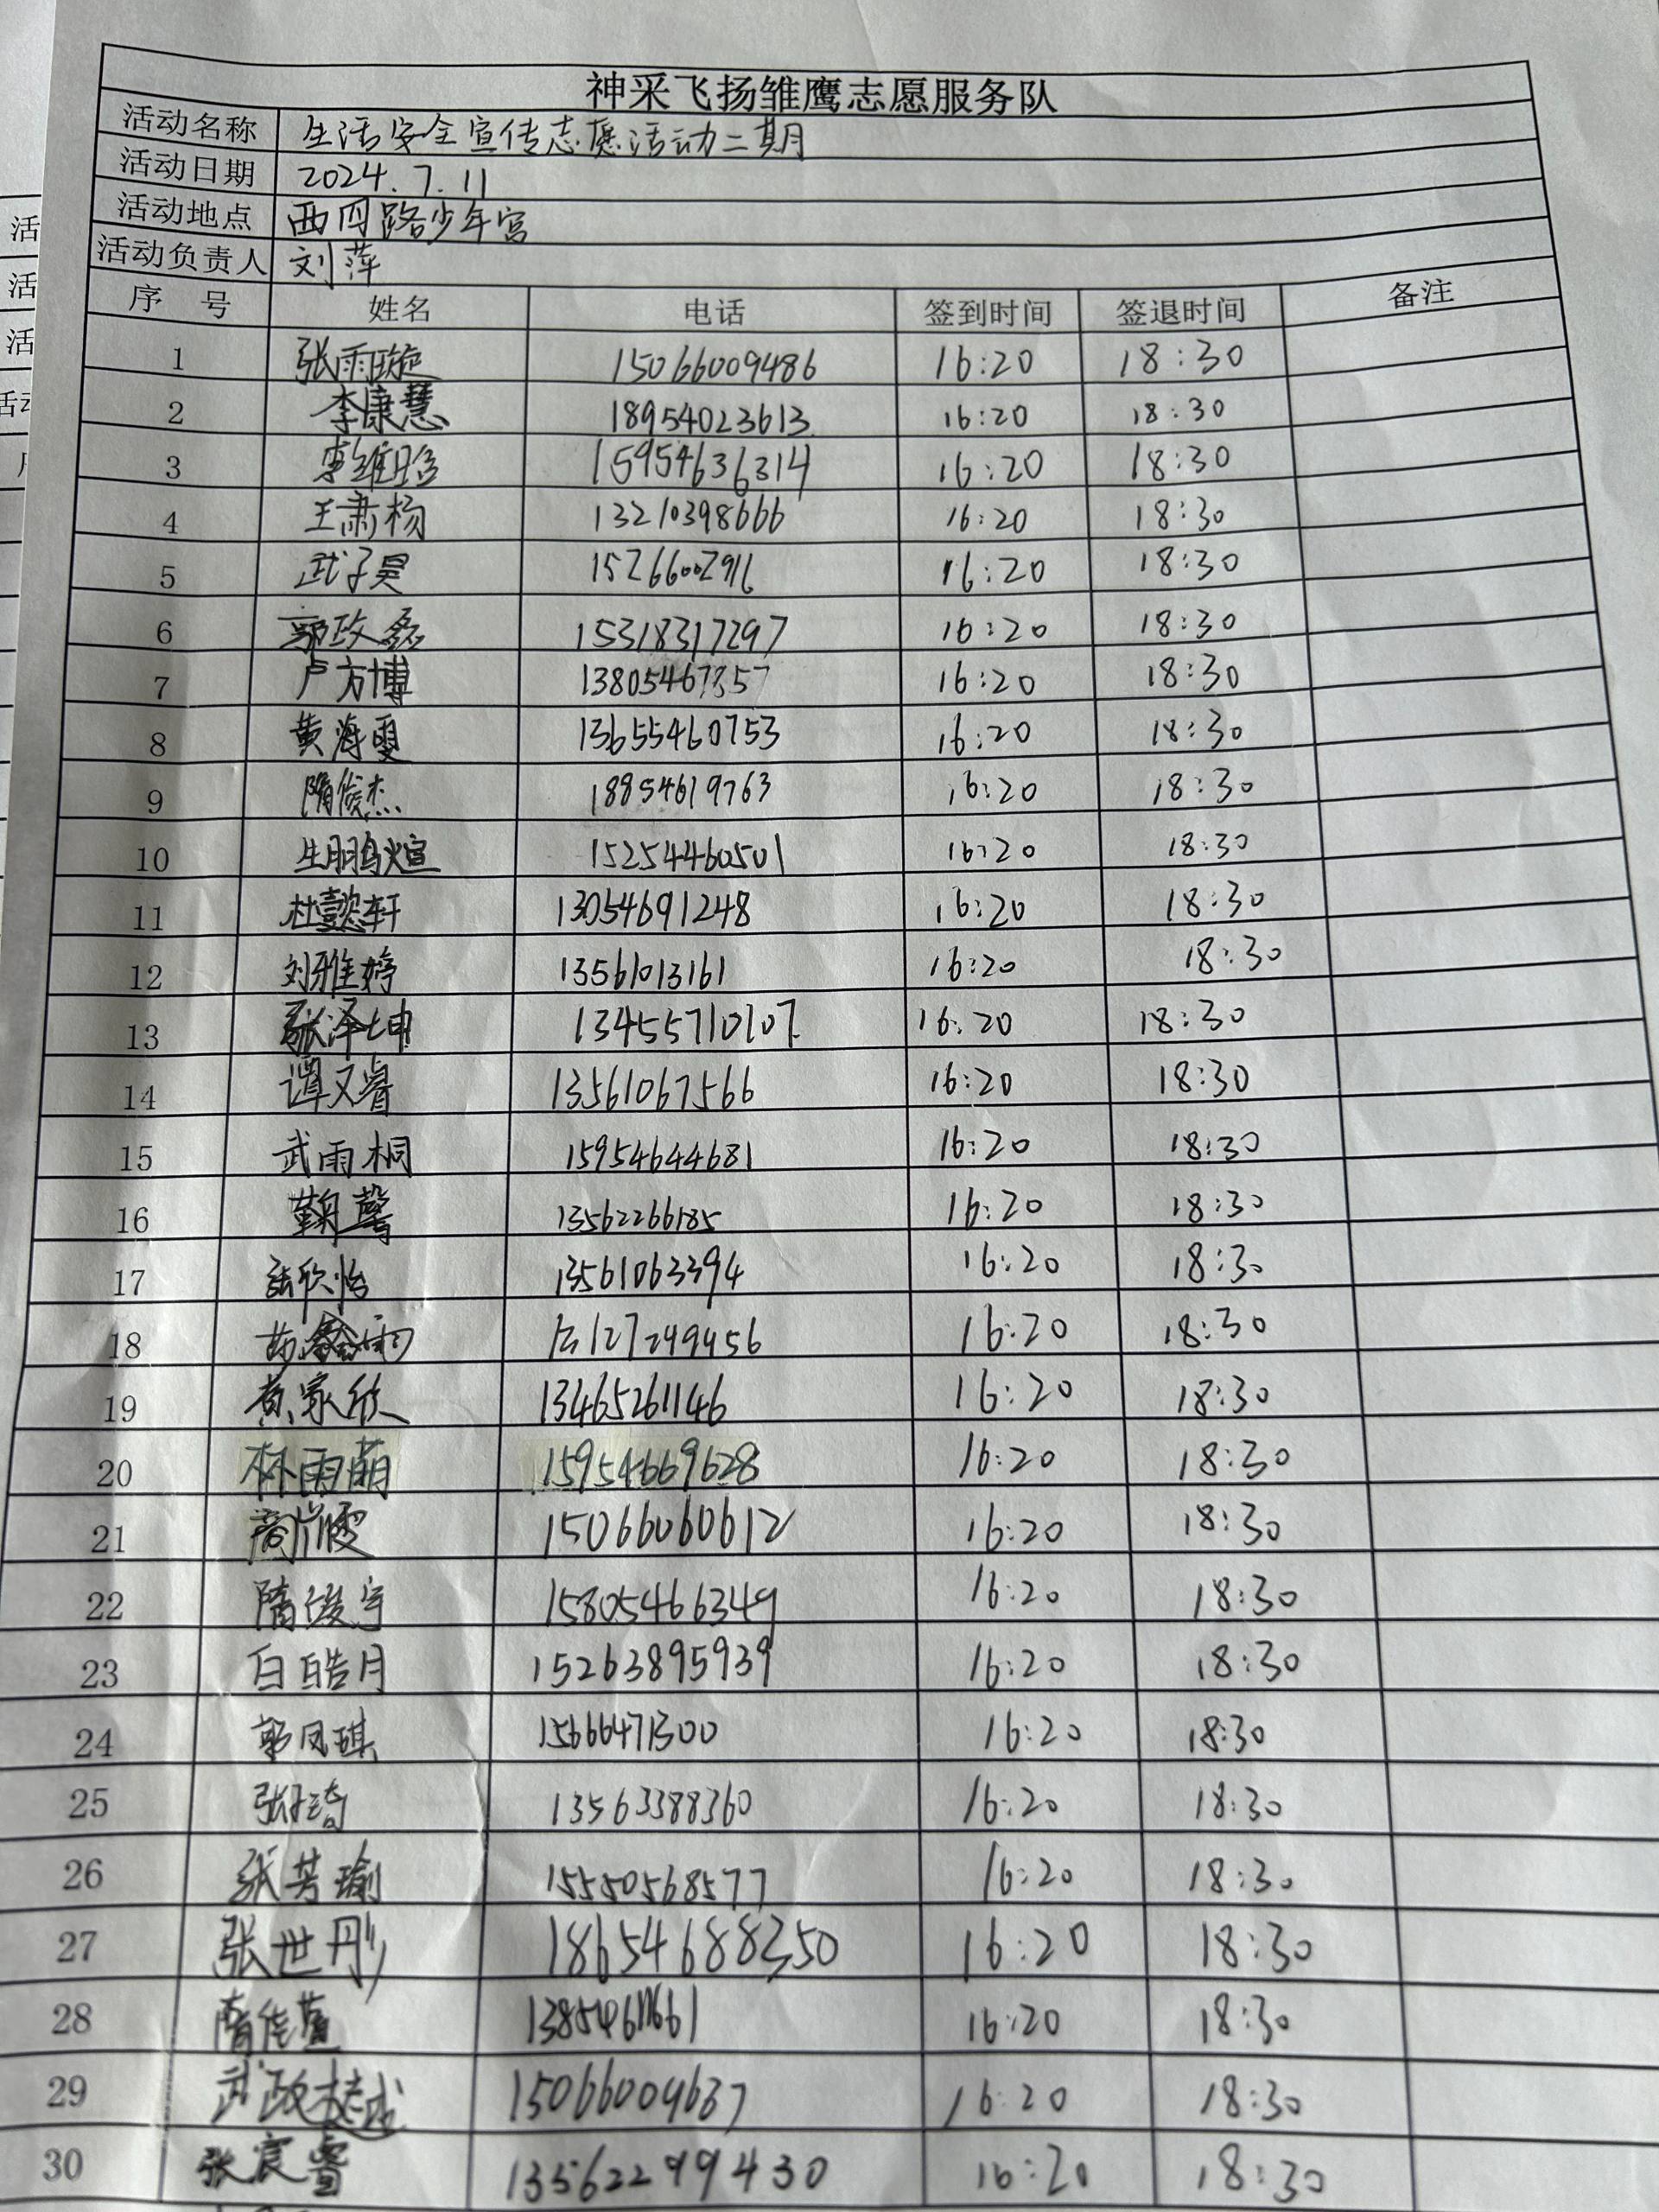 神采飞扬雏鹰志愿服务队
活动名称 生活安全宣传志愿活动二期
活动日期 2024.7.11
活动地点 西四路少年宫
活动负责人 刘萍
序 号 姓名 电话 签到时间 签退时间 备注
1 张雨璇 15066009486 16:20 18:30
2 李康慧 18954023613 16:20 18:30
3 15954636314 16:20 18:30
4 王肃杨 13210398666 16:20 18:30
5 武子昊 15266002916 16:20 18:30
6 郭政磊 15318317297 16:20 18:30
7 卢方博 13805467857 16:20 18:30
8 黄海雯 13655460753 16:20 18:30
9 隋俊杰 18854619763 16:20 18:30
10 生鹏煊 15254460501 16:20 18:30
11 杜懿轩 13054691248 16:20 18:30
12 刘雅婷 13561013161 16:20 18:30
13 张泽坤 13455710107 16:20 18:30
14 谭又睿 13561067566 16:20 18:30
15 武雨桐 15954644681 16:20 18:30
16 鞠馨 13562266185 16:20 18:30
17 张欣怡 13561063394 16:20 18:30
18 16:20 18:30
19 黄家欣 13465261146 16:20 18:30
20 林雨萌 15954669628 16:20 18:30
21 15066060612 16:20 18:30
22 隋俊宇 15805466349 16:20 18:30
23 白皓月 15263895939 16:20 18:30
24 郭凤琪 15666471300 16:20 18:30
25 13563388360 16:20 18:30
26 张芳瑜 15550568577 16:20 18:30
27 张世彤 18654688350 16:20 18:30
28 16:20 18:30
29 15066009637 16:20 18:30
30 张宸睿 13562299430 16:20 18:30